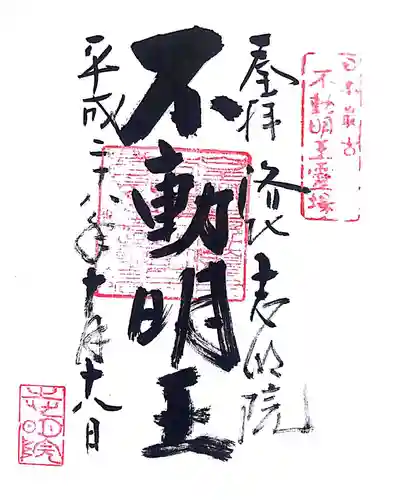 日本最古
不動明王霊場
奉拝 洛北 志明院
不動明王
平成二十八年十月十八日